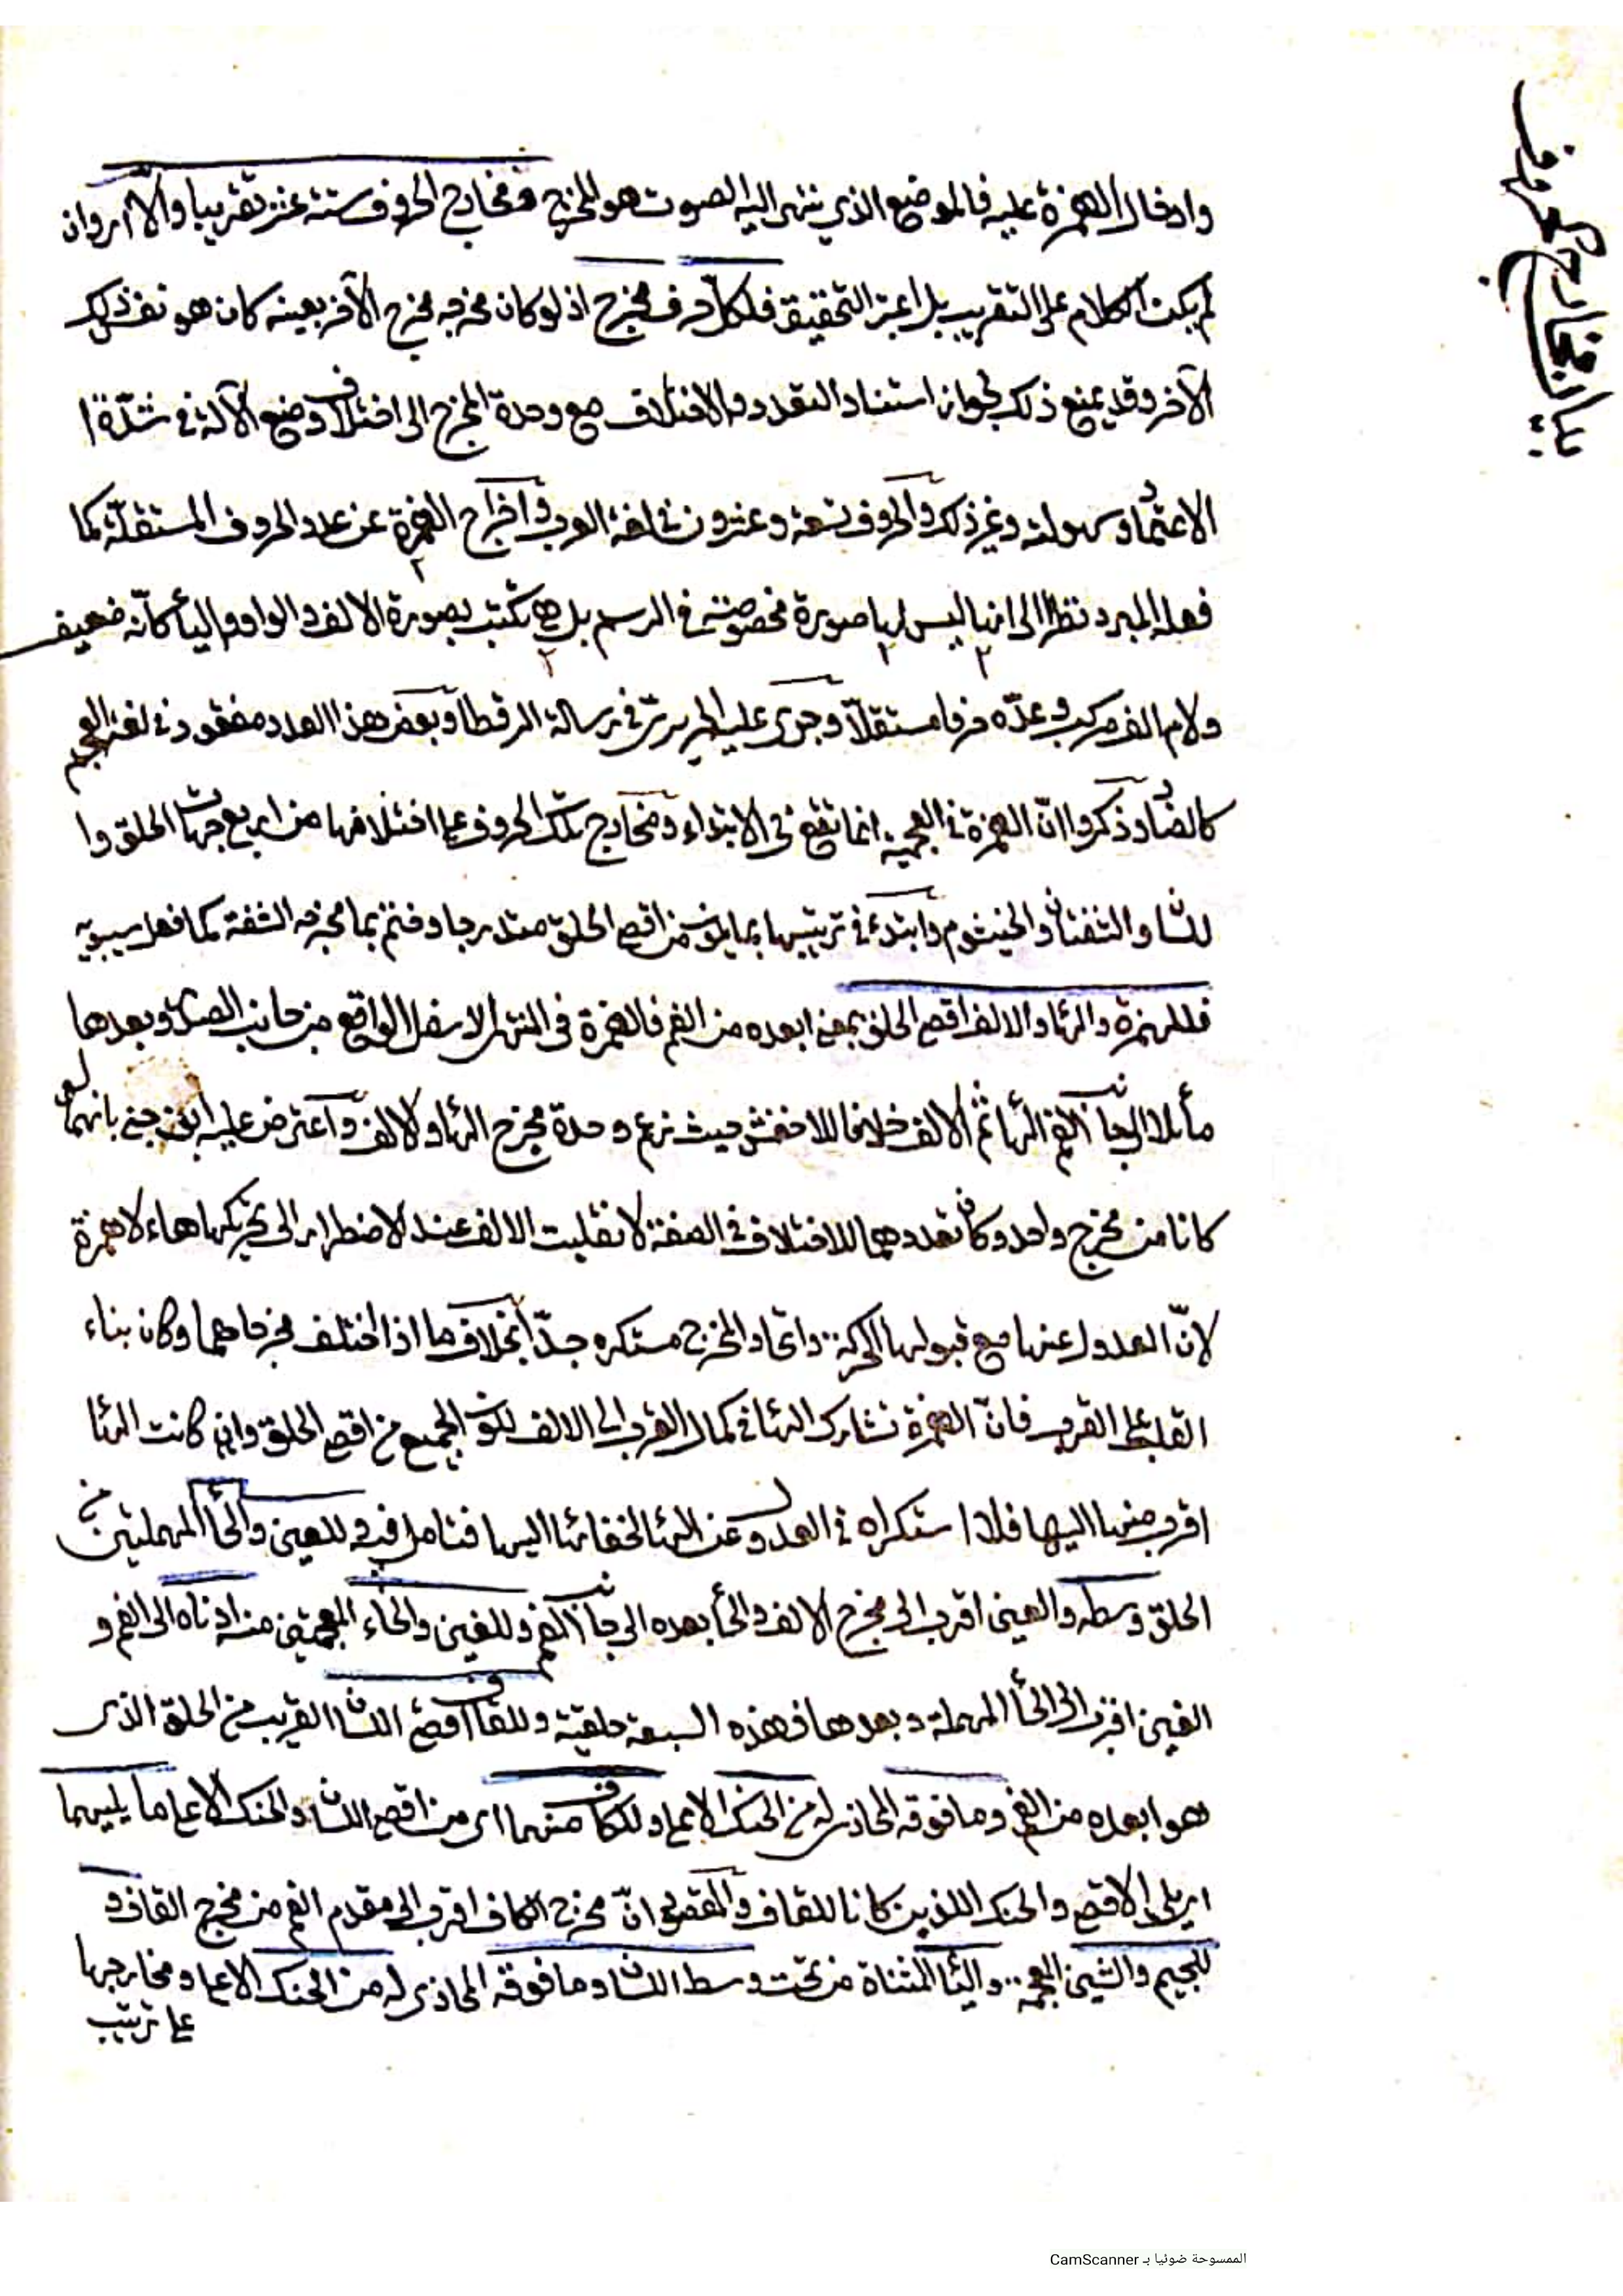 بيان مخارج الحروف
وادخال الهمزة عليه فالموضع الذي ينتهى اليه الصوت هو المخرج ومخارج الحروف ستة عشر تقريبا والا اى وان
لم يكن الكلام على التقريب بل اعتبر التحقيق فلكل حرف مخرج اذ لو كان مخرجه مخرج الآخر بعينه كان هو نفس ذلك
الآخر وقد يمنع ذلك لجواز استناد التعدد والاختلاف مع وحدة المخرج الى اختلاف وضع الآلة فى شدّة ا
الاعتماد وسهولته وغير ذلك والحروف تسعة وعشرون فى لغة العرب واخراج الهمزة عن عدد الحروف المستقلّة كما
فعله المبرد نظرا الى انها ليس لها صورة مخصوصة فى الرسم بل هى تكتب بصورة الالف والواو والياء كأنّه ضعيف
ولام الف مركب وعدّه حرفا مستقلّا وجرى عليه الحريرى فى رسالة الرقطا وبعض هذا العدد مفقود فى لغة العجم
كالضاد وذكروا انّ الهمزة فى العجمية انما تقع فى الابتداء ومخارج تلك الحروف على اختلافها من اربع جهات الحلق وا
للسان والشفتان والخيشوم وابتدء فى ترتيبها بما يكون من اقصى الحلق متدرجا وختم بما مخرجه الشفة كما فعل سيبويه
فللهمزة والهاء والالف اقصى الحلق بمعنى ابعده من الفم فالهمزة فى المنتهى الاسفل الواقع من جانب الصدر وبعدها
مائلا الى جانب الفم الهاء ثم الالف خلافا للاخفش حيث زعم وحدة مخرج الهاء والالف واعترض عليه ابن جنى بانهما لو
كانا من مخرج واحد وكان تعددهما للاختلاف فى الصفة لانقلبت الالف عند الاضطرار الى تحريكها هاء لا همزة
لانّ العدول عنها مع قبولها الحركة واتحاد المخرج مستكره جدّا بخلاف ما اذا اختلف مخرجاهما وكان بناء
القلب على القرب فانّ الهمزة تشارك الهاء فى كمال القرب الى الالف لكون الجميع من اقصى الحلق وان كانت الهاء
اقرب منها اليها فلا استكراه فى العدول عن الهاء لخفائها اليها فتامل فيه وللعين والحاء المهملتين من
الحلق وسطه والعين اقرب الى مخرج الالف والحاء بعده الى جانب الفم وللغين والخاء المعجمتين منه ادناه الى الفم و
الغين اقرب الى الحاء المهملة وبعدها فهذه السبعة حلقية وللقاف اقصى اللسان القريب من الحلق الذى
هو ابعده من الفم وما فوقه المحاذى له من الحنك الاعلى وللكاف منهما اى من اقصى اللسان والحنك الاعلى ما يليهما
اى يلى الاقصى والحنك اللذين كانا للقاف والمقصود انّ مخرج الكاف اقرب الى مقدم الفم من مخرج القاف و
للجيم والشين المعجمة والياء المثناة من تحت وسط اللسان وما فوقه المحاذى له من الحنك الاعلى ومخارجها
على ترتيب
الممسوحة ضوئيا بـ CamScanner